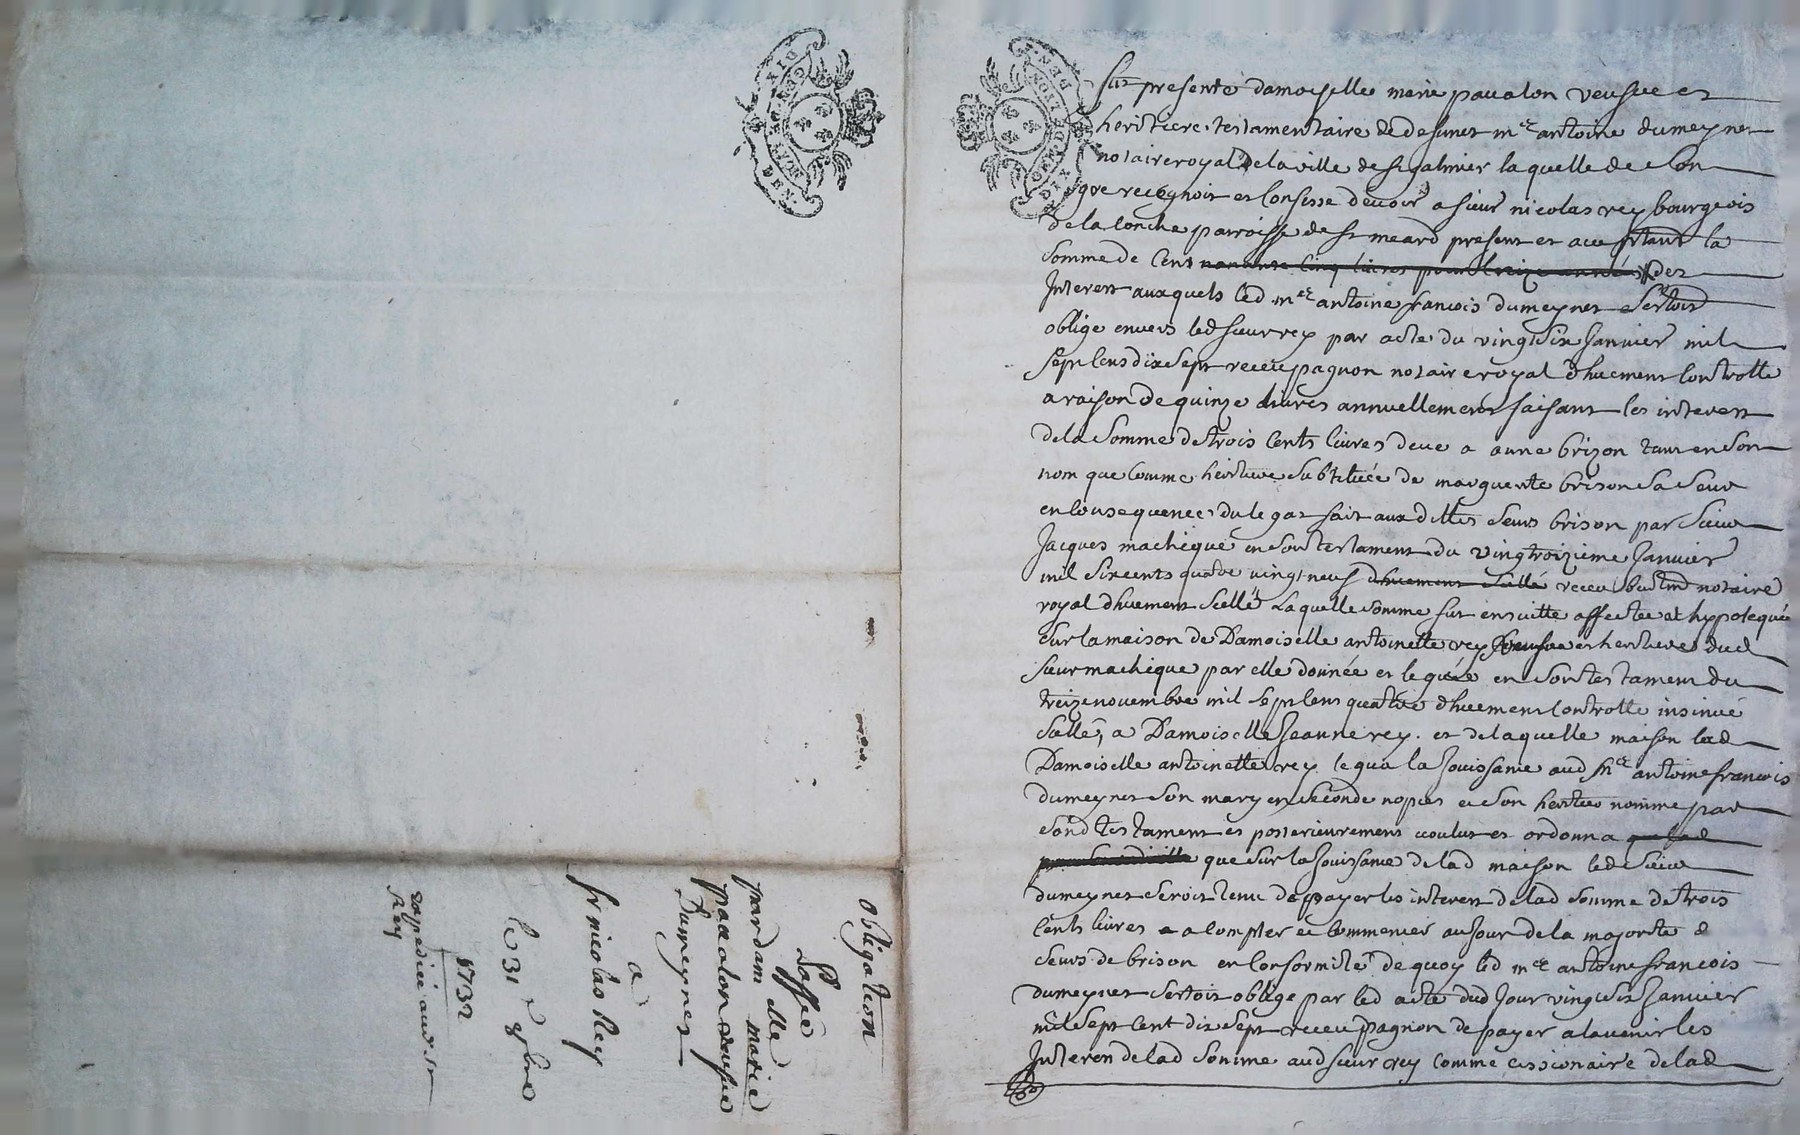 fut presente damoyselle marie paualon veufue et
heritiere testamentaire de defunct me antoine dumeynet
notaire royal de la ville de st galmier la quelle de son
gre recognoit et confesse deuoir a sieur nicolas rey bourgeois
de la conche parroisse de st meard present et acceptant la
somme de cent nonante cinq liures pour treize années des
Interest auxquels led me antoine francois dumeynet sestoit
oblige enuers led sieur rey par acte du vingt six Januier mil
sept cens dix sept receu pagnon notaire royal dhuement controlle
a raison de quinze liures annuellement faisant les interest
de la somme de trois cents liures deue a anne brizon tant en son
nom que comme heritiere substituée de marguerite brison sa seur
en consequence du legat fait aux dittes seurs brison par sieur
Jacques machique en son testament du vingtroizieme Januier
mil six cents quatre vingt neuf dhuement scellé receu notaire
royal dhuement scellé laquelle somme fut ensuitte affectée et hypotequée
sur la maison de Damoiselle antoinette rey veufue et heritiere dud
sieur machique par elle donnée et leguée en son testament du
treize nouembre mil sept cens quattre dhuement controllé insinué
scellé, a Damoiselle Jeanne rey. et de laquelle maison lad
Damoiselle antoinette rey legua la Jouissance aud me antoine francois
dumeynet son mary en seconde nopces et son heritier nomme par
sond testament et posterieurement voulut et ordonna que lad
que sur la Jouissance de lad maison led sieur
dumeynet seroit tenu de payer les interest de lad somme de trois
cents liures a compter et commencer au Jour de la majorité d
seurs de brison en conformité de quoy led me antoine francois
dumeynet sestoit oblige par led acte dud Jour vingt six Januier
mil sept cent dix sept receu pagnon de payer a lauenir les
Interest de lad somme aud sieur rey comme cessionaire de lad
obligation
passée
par dam elle marie
paualon veufue
Dumeynet
a
sr nicolas Rey
le 31 d 8bre
1732
expediée aud sr
Rey